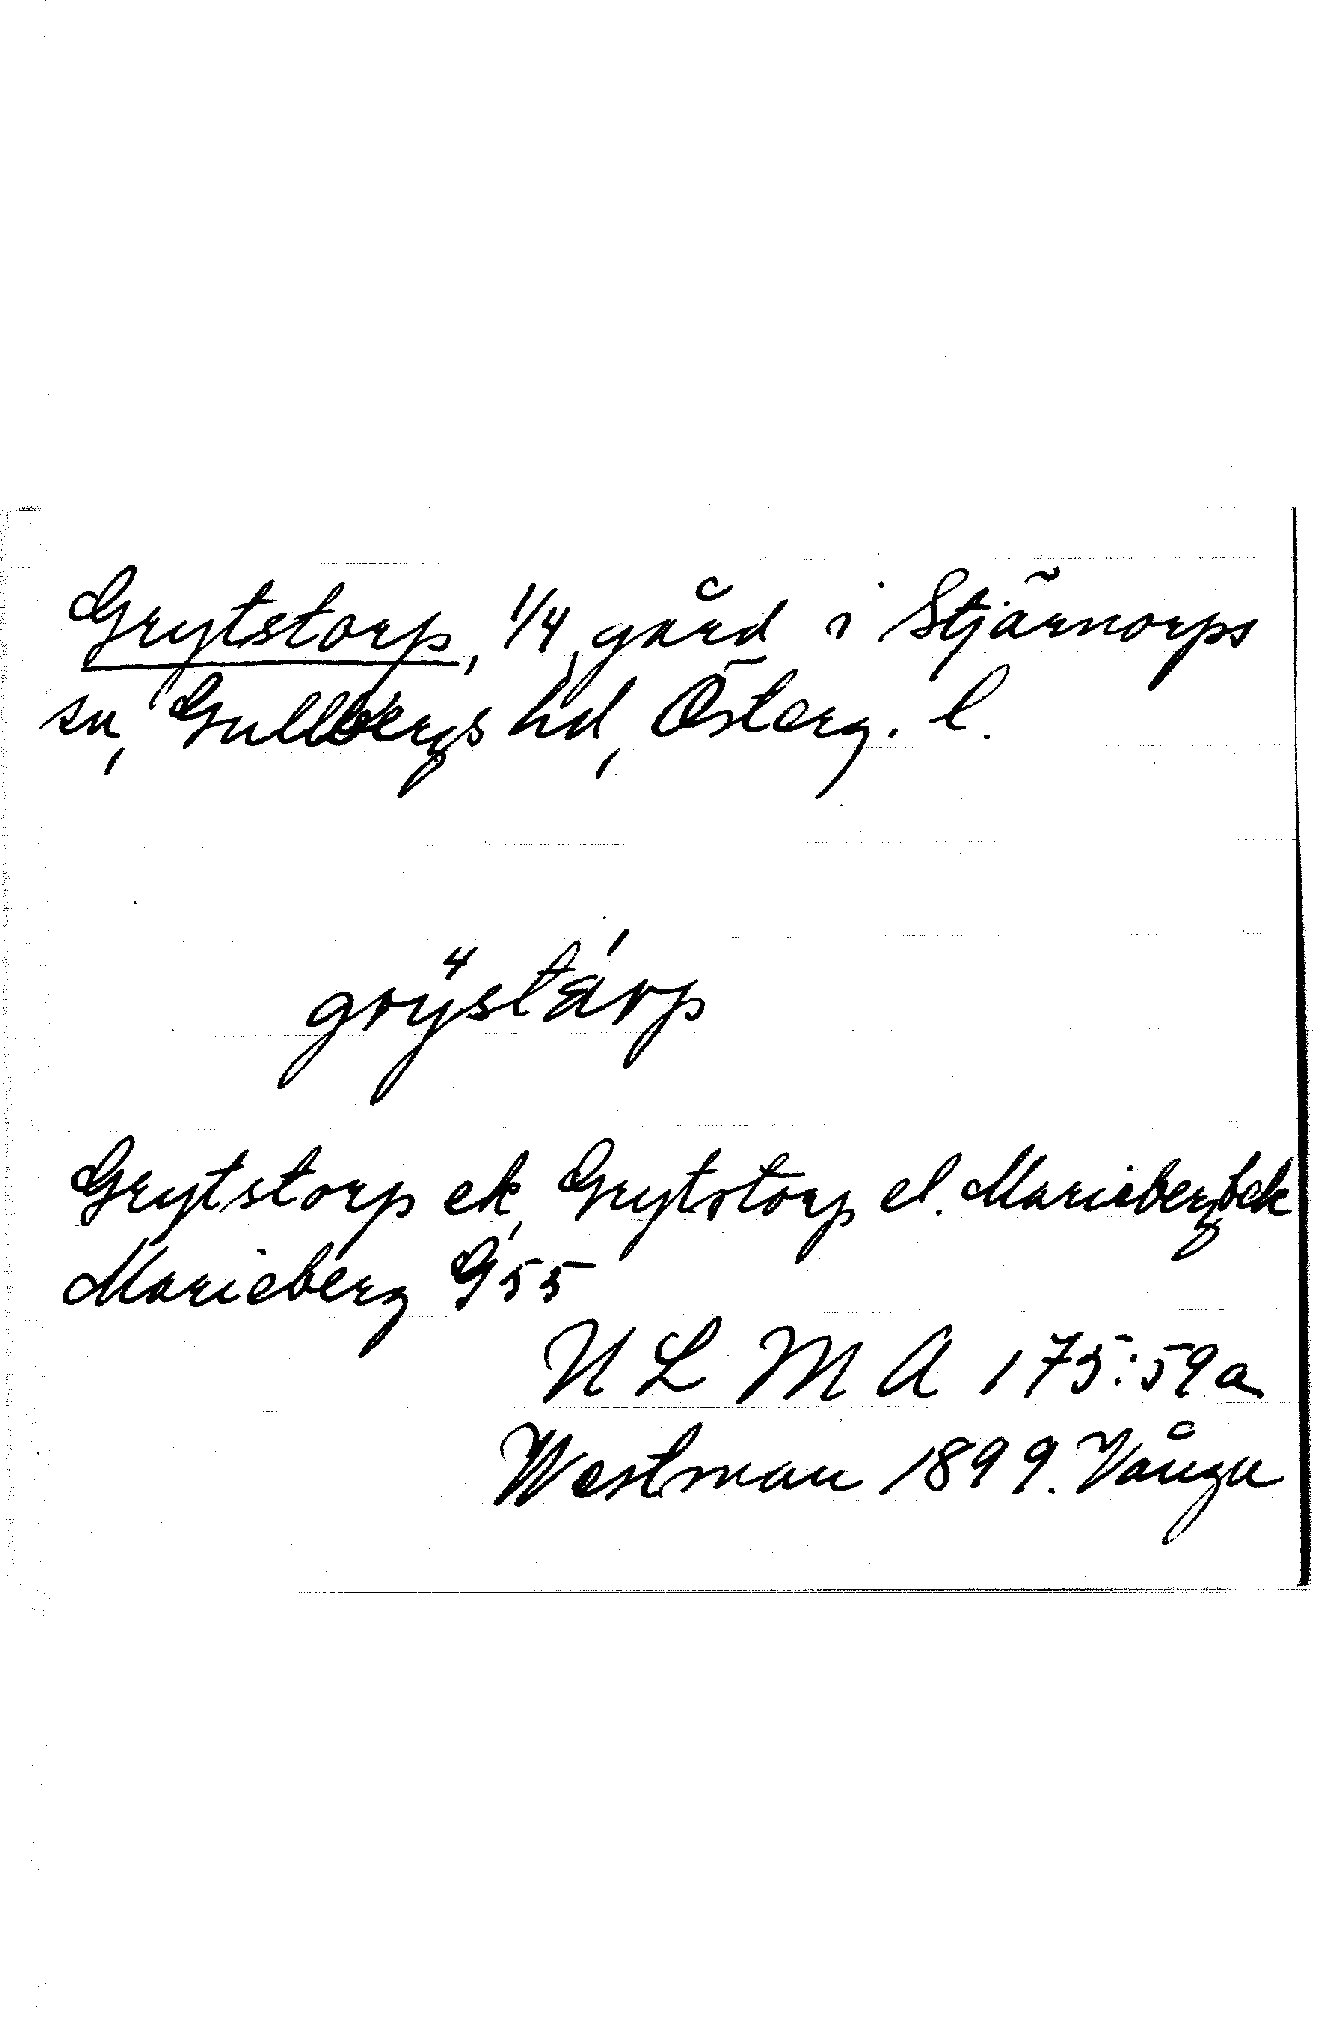 Grytstorp, 1/4 gård i Stjärnorps
sn, Gullbergs hd, Österg. l.
Grytstorp ek, Grytstorp el. Marieberg bek
Marieberg G 55
U L M A 175:59a
Westman 1899. Vånga